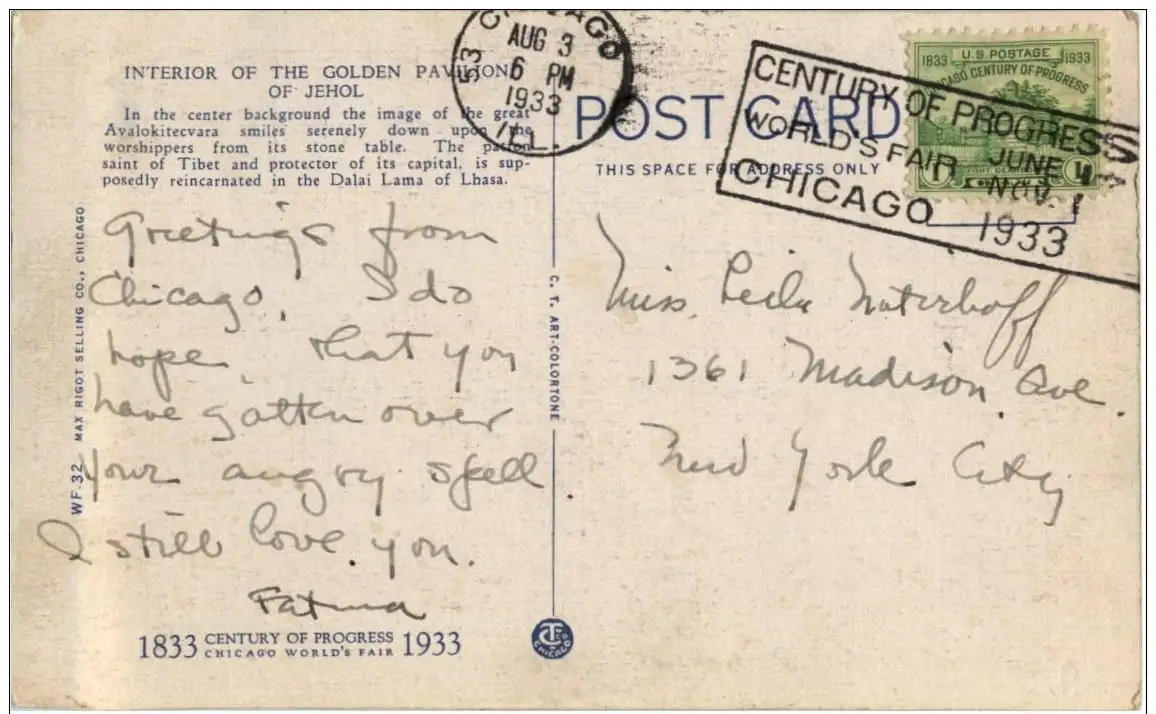 INTERIOR OF THE GOLDEN PAVILION
OF JEHOL
In the center background the image of the great
Avalokitecvara smiles serenely down upon the
worshippers from its stone table. The patron
saint of Tibet and protector of its capital, is sup-
posedly reincarnated in the Dalai Lama of Lhasa.
Greetings from
Chicago. I do
hope that you
have gotten over
your angry spell.
I still love you.
Fatma
1833 CENTURY OF PROGRESS 1933
CHICAGO WORLD'S FAIR
WF-32 MAX RIGOT SELLING CO., CHICAGO
C. T. ART-COLORTONE
CHICAGO
53
AUG 3
6 PM
1933
ILL.
POST CARD
THIS SPACE FOR ADDRESS ONLY
CENTURY OF PROGRESS
WORLD'S FAIR JUNE 1
CHICAGO NOV. 1
1933
U.S. POSTAGE
1833 1933
CHICAGO CENTURY OF PROGRESS
FORT DEARBORN
1¢ 1¢
Miss
1361 Madison Ave.
New York City
CT CO
CHICAGO